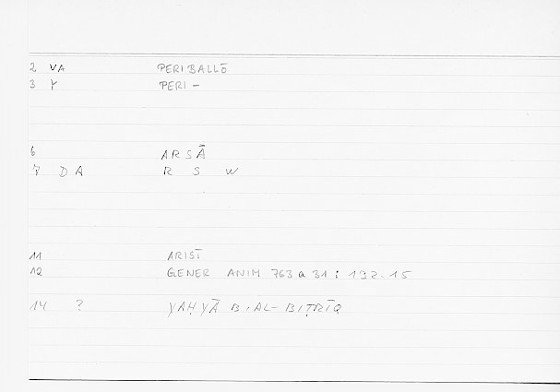 2 VA PERIBALLŌ
3 Y PERI-
6 ARSĀ
7 D A R S W
11 ARIST
12 GENER ANIM 763a31 : 192.15
14 ? YAḤYĀ B.AL-BIṬRĪQ